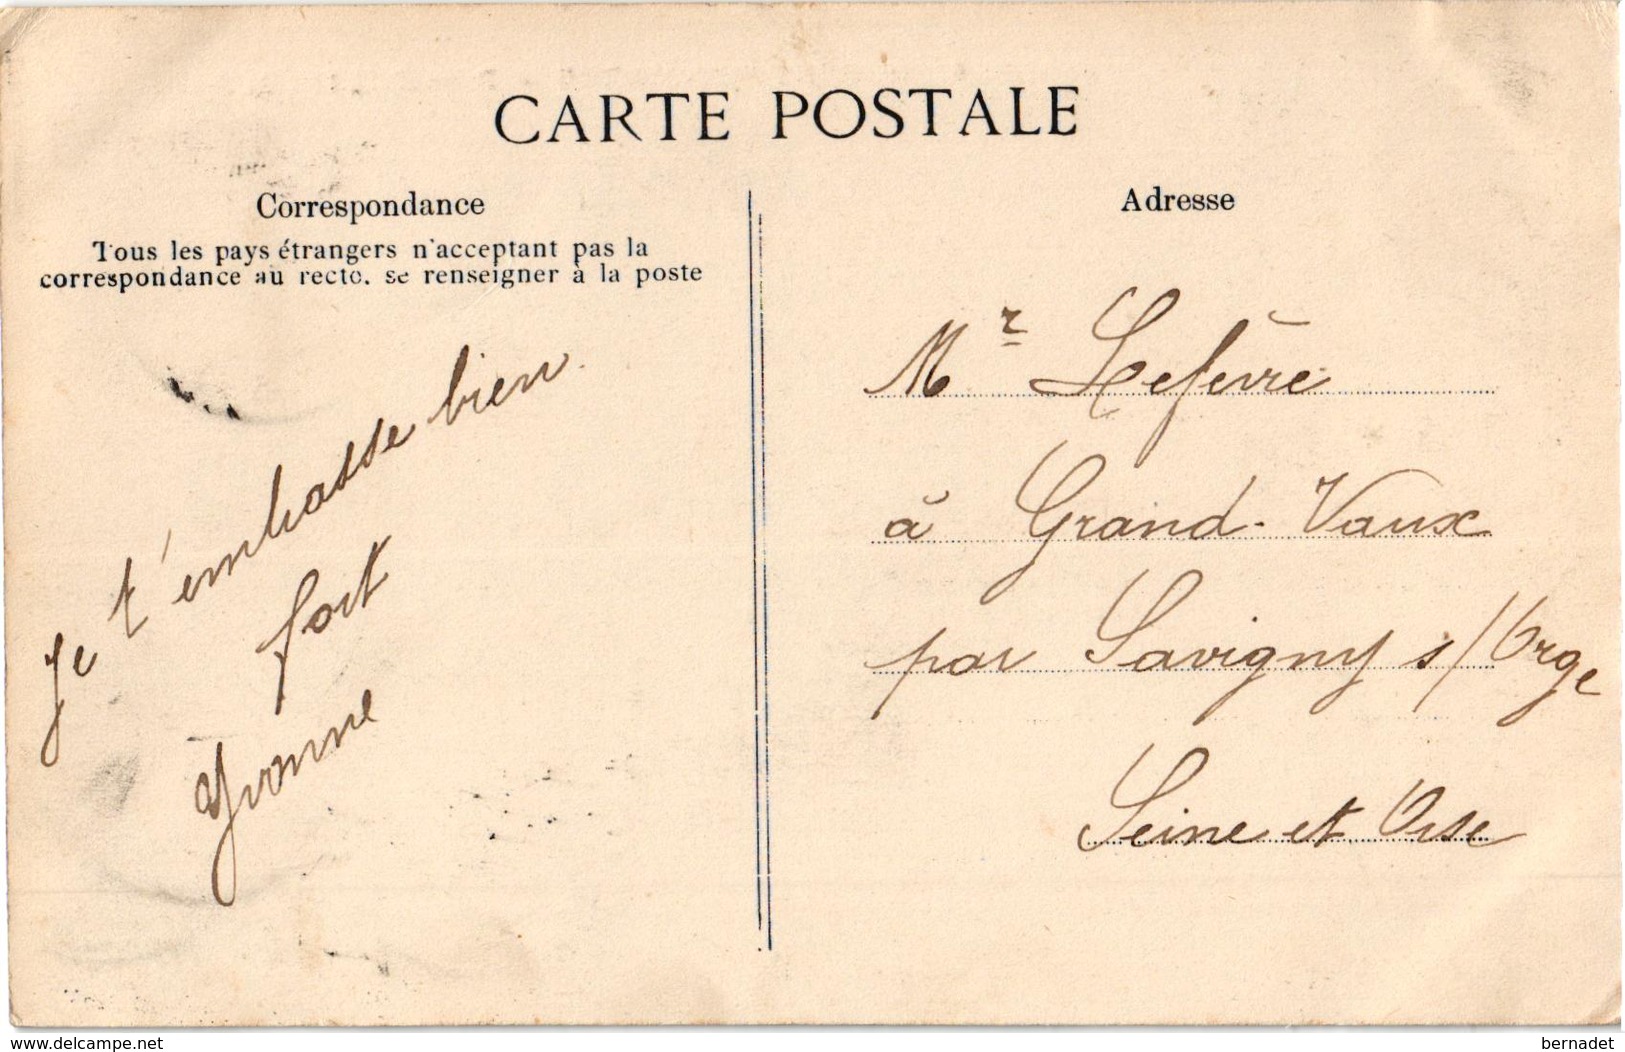 CARTE POSTALE
Correspondance
Tous les pays étrangers n'acceptant pas la
correspondance au recto. se renseigner à la poste
Je t'embrasse bien
fort
Yvonne
Adresse
Mr Lefèvre
à Grand-Vaux
par Savigny s/Orge
Seine et Oise
www.delcampe.net
bernadet